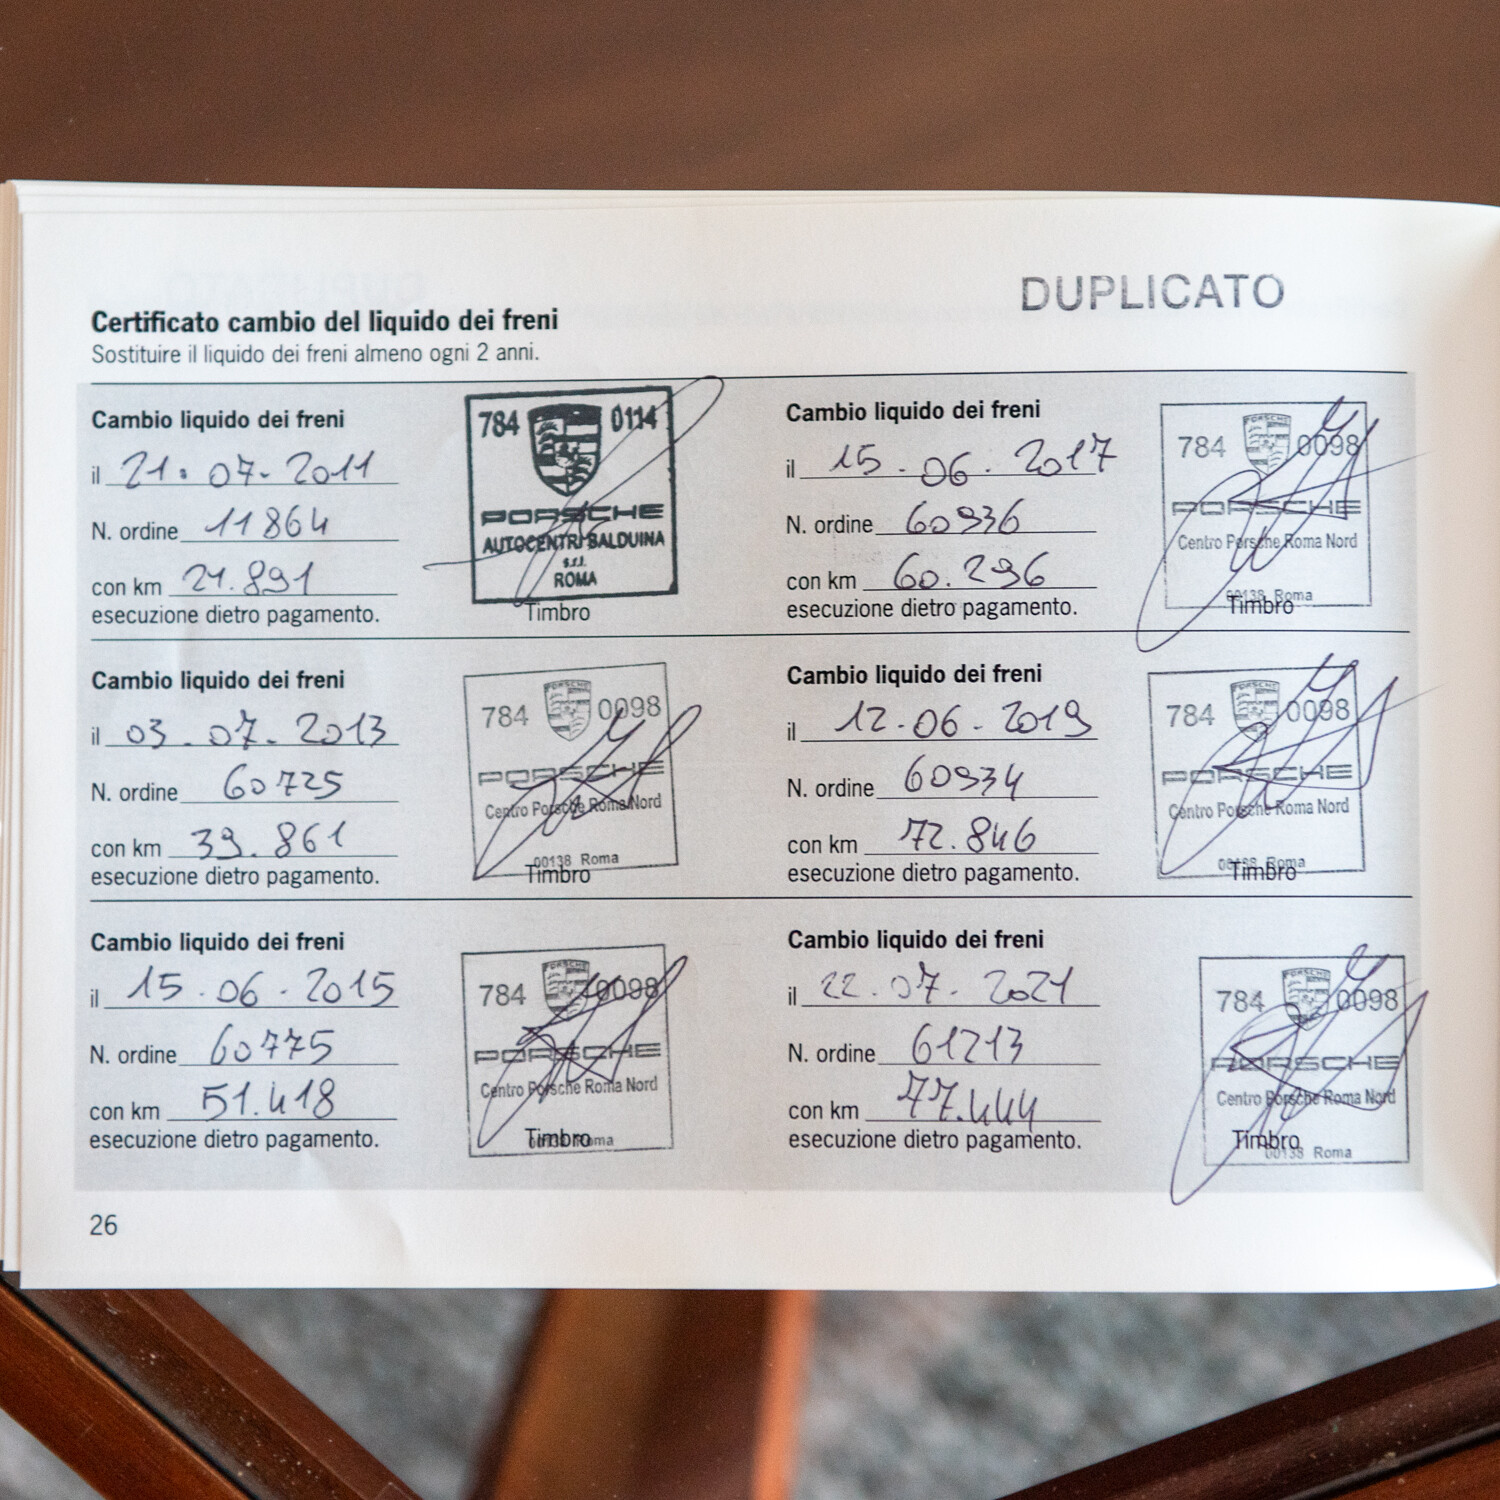 DUPLICATO
Certificato cambio del liquido dei freni
Sostituire il liquido dei freni almeno ogni 2 anni.
Cambio liquido dei freni
il 21.07.2011
N. ordine 11864
con km 21.891
esecuzione dietro pagamento.
784 0114
PORSCHE
AUTOCENTRI BALDUINA
s.r.l.
ROMA
Timbro
Cambio liquido dei freni
il 03.07.2013
N. ordine 60725
con km 39.861
esecuzione dietro pagamento.
PORSCHE
784 0098
PORSCHE
Centro Porsche Roma Nord
00138 Roma
Timbro
Cambio liquido dei freni
il 15.06.2015
N. ordine 60775
con km 51.418
esecuzione dietro pagamento.
PORSCHE
784 0098
PORSCHE
Centro Porsche Roma Nord
00138 Roma
Timbro
Cambio liquido dei freni
il 15.06.2017
N. ordine 60936
con km 60.296
esecuzione dietro pagamento.
PORSCHE
784 0098
PORSCHE
Centro Porsche Roma Nord
00138 Roma
Timbro
Cambio liquido dei freni
il 12.06.2019
N. ordine 60934
con km 72.846
esecuzione dietro pagamento.
PORSCHE
784 0098
PORSCHE
Centro Porsche Roma Nord
00138 Roma
Timbro
Cambio liquido dei freni
il 22.07.2021
N. ordine 61213
con km 77.444
esecuzione dietro pagamento.
PORSCHE
784 0098
PORSCHE
Centro Porsche Roma Nord
00138 Roma
Timbro
26